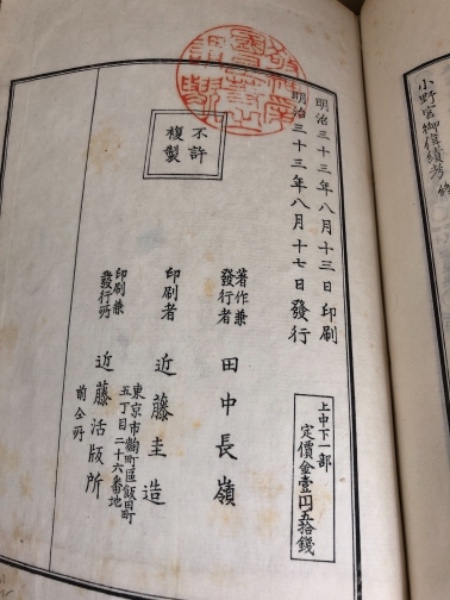 小野宮御偉績考
明治三十三年八月十三日印刷
明治三十三年八月十七日發行
上中下一部
定價金壹円五拾錢
不許
複製
著作兼
發行者
田中長嶺
印刷者
近藤圭造
東京市麹町區飯田町
五丁目二十六番地
印刷兼
發行所
近藤活版所
前仝所